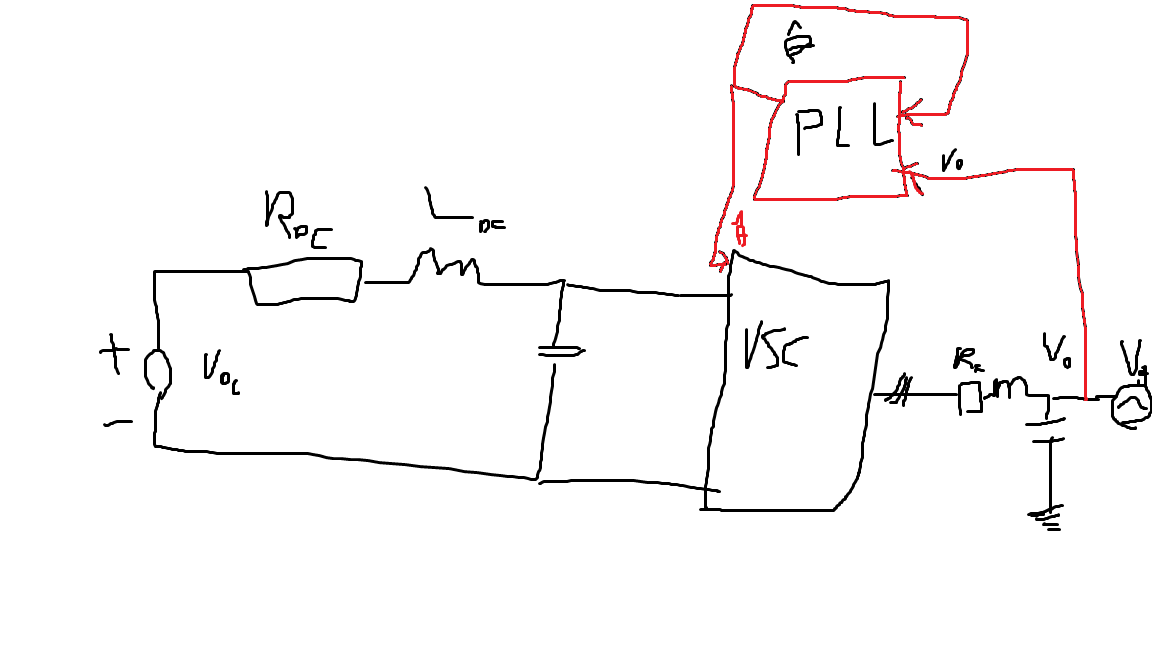 θ̂
PLL
V₀
R_DC
L_DC
+
V_DC
-
VSC
R_F
V₀